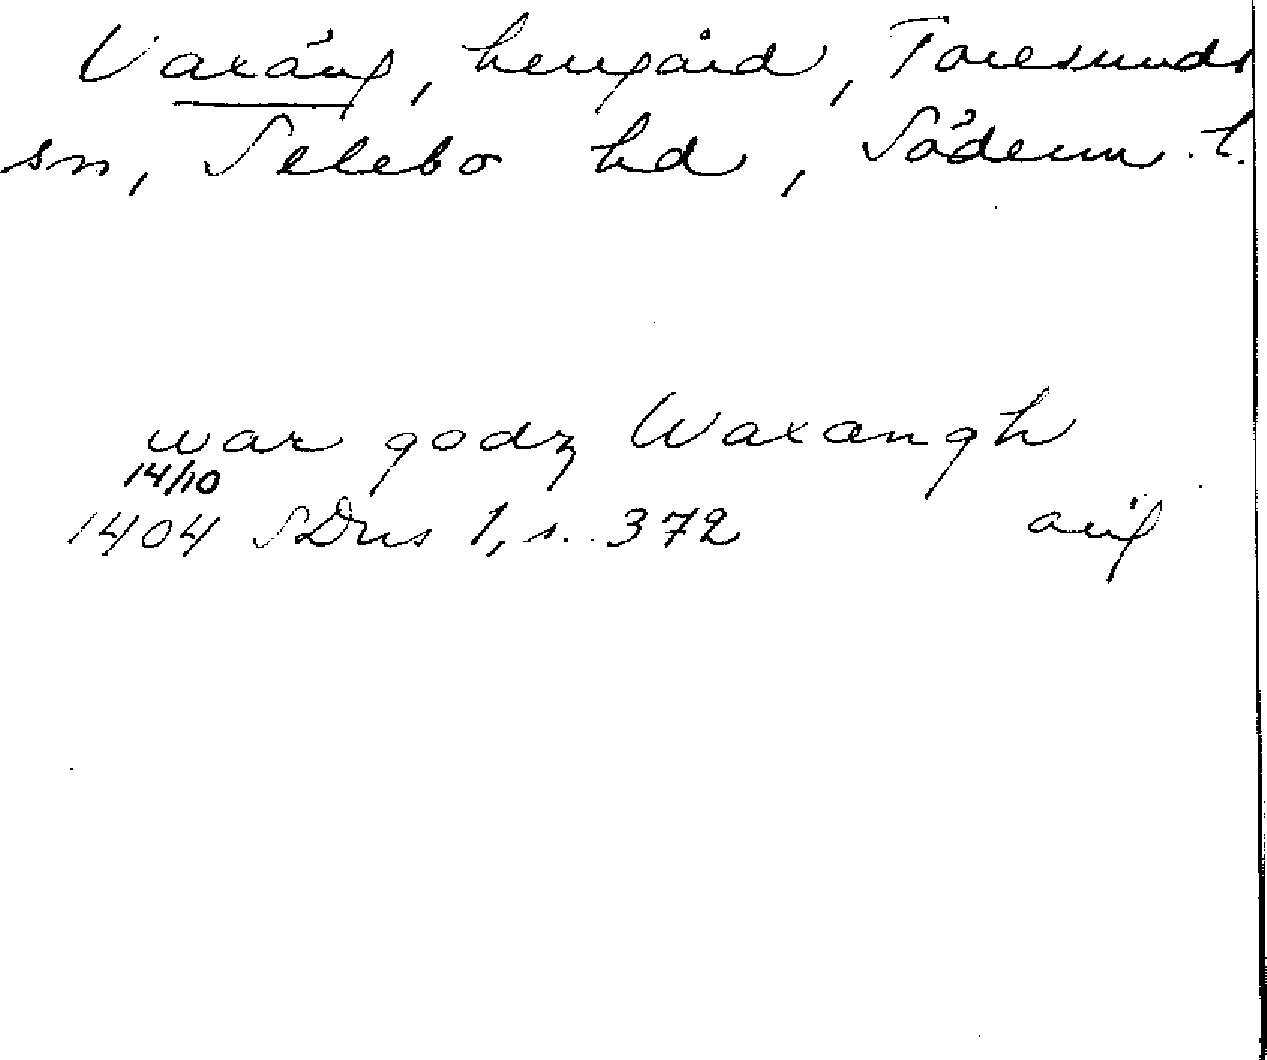 Vaxäng, herrgård, Toresunds
sn, Selebo hd, Söderm. l.
war godz Waxangh
14/10
1404 SDns 1, s. 372 äng